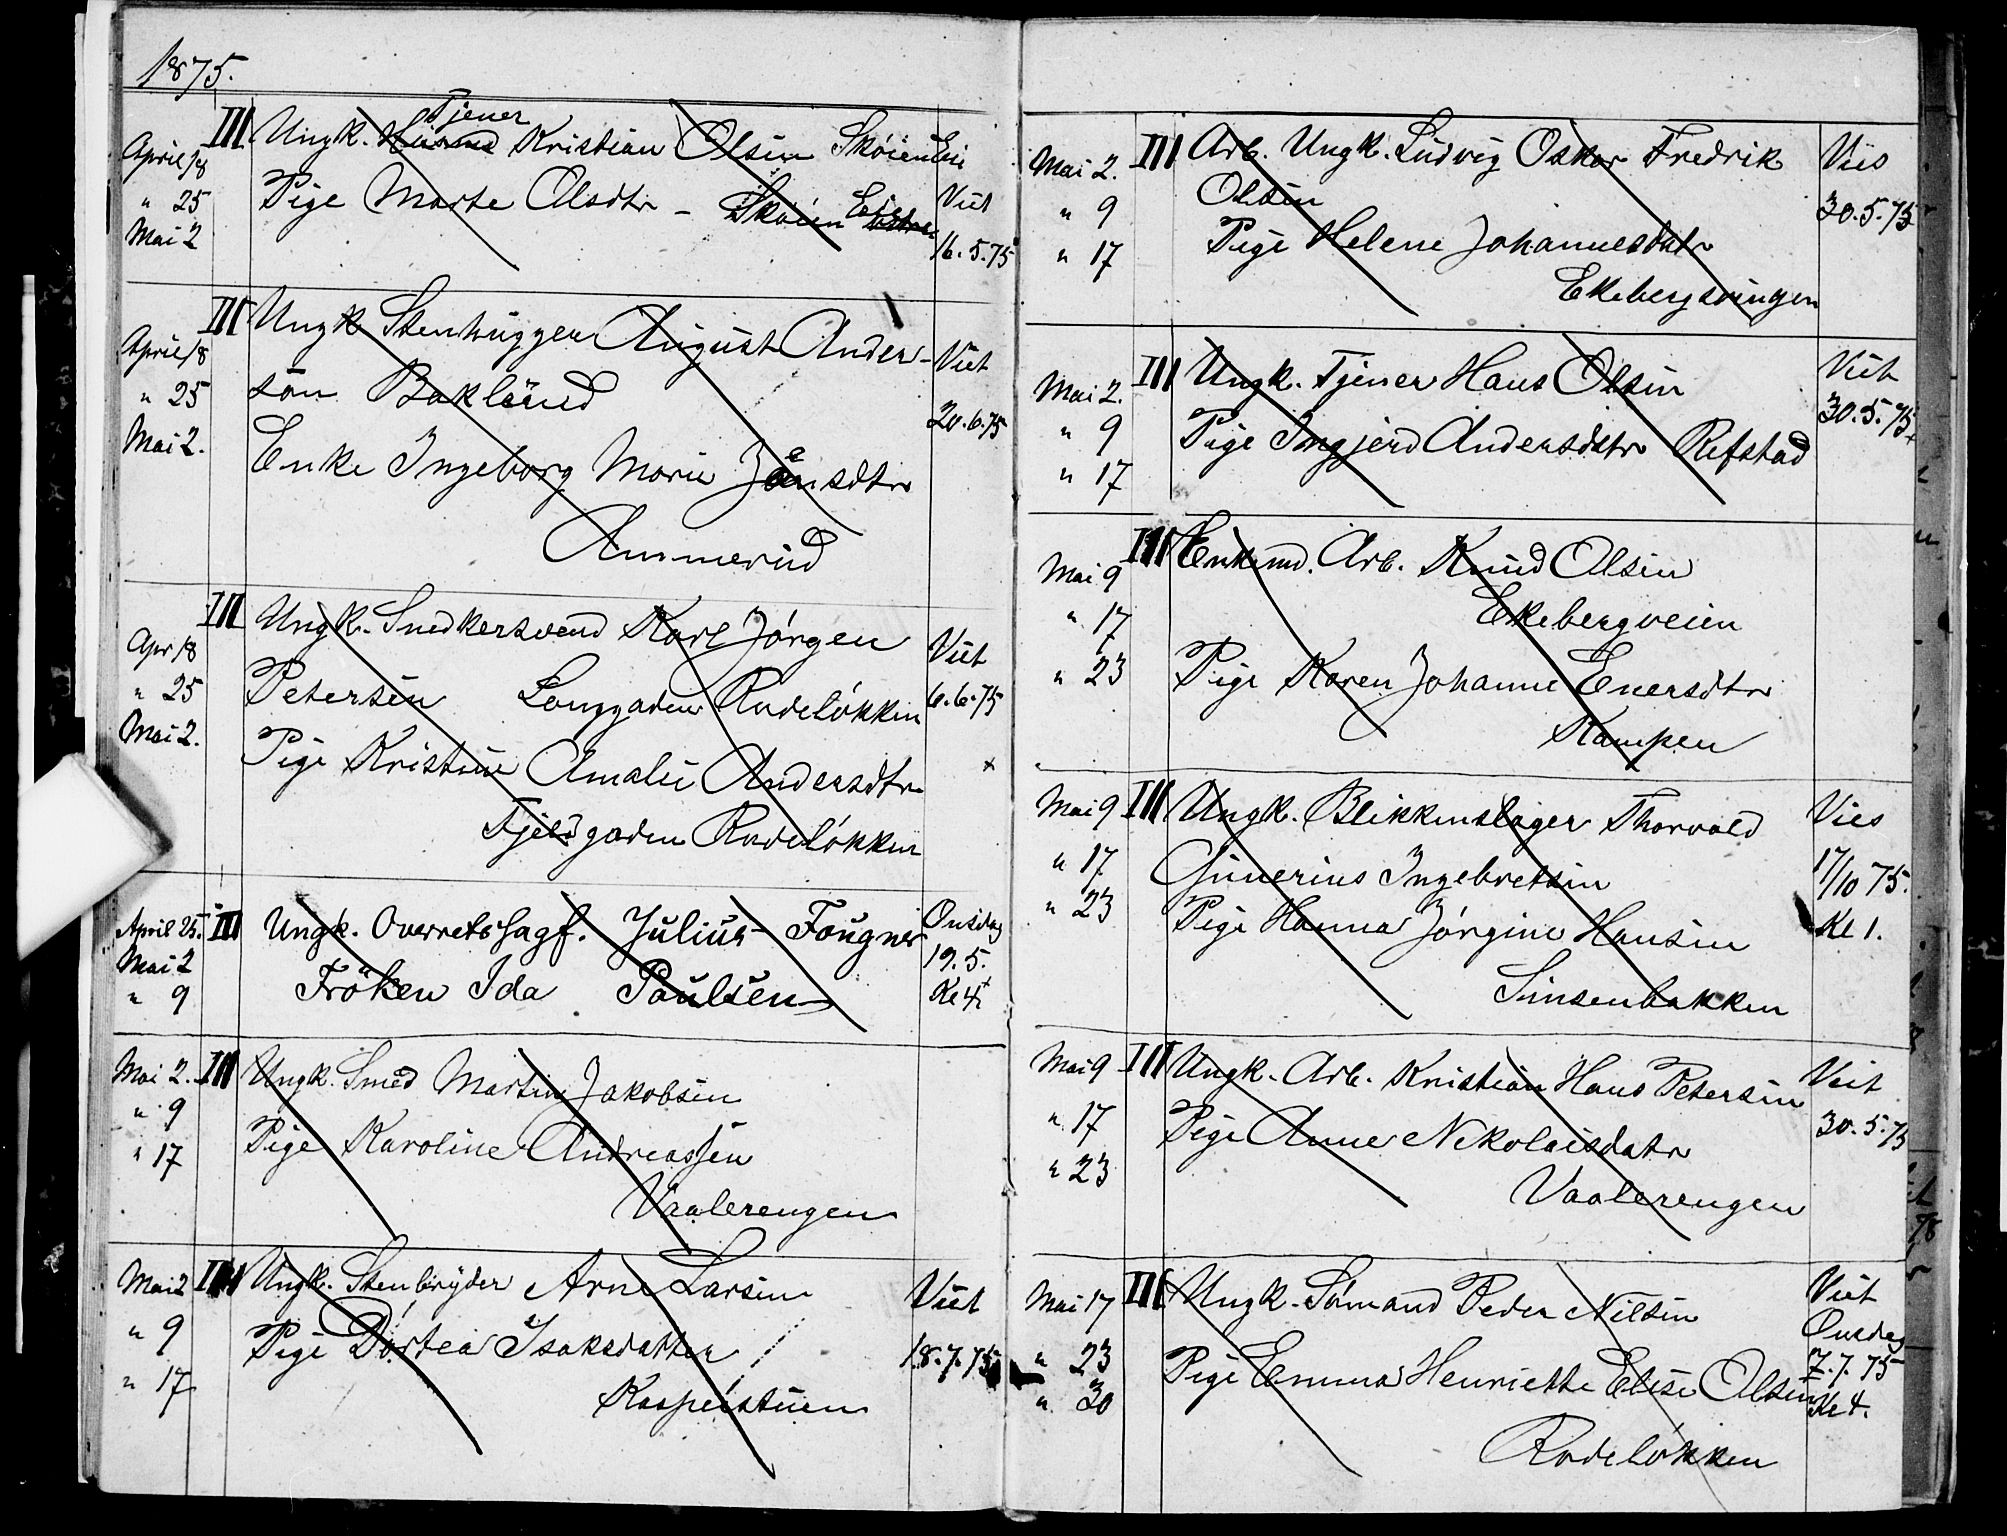 1875.
Tjener
April 18 III Ungk. Kristian Olsen Skøien Eie
" 25 Pige Marte Olsdtr - Skøien Eie Viet
Mai 2 16.5.75
April 18 III Ungk Stenhugger August Ander- Viet
" 25 son Baklund 20.6.75
Mai 2. Enke Ingeborg Marie Jensdtr
Ammerud
Apr 18 III Ungk. Snedkersvend Karl Jørgen Viet
" 25 Petersen Langgaden Rodeløkken 6.6.75
Mai 2. Pige Kristine Amalie Andersdtr x
Fjeldgaden Rodeløkken
April 25. III Ungk. Overretssagf. Julius Fougner Onsdag
Mai 2 Frøken Ida Paulsen 19.5.
" 9 Kl 4
Mai 2. III Ungk. Smed Martin Jakobsen
" 9
" 17 Pige Karoline Andreassen
Vaalerengen
Mai 2 III Ungk. Stenbryder Arne Larsen Viet
" 9 Pige Dortea Isaksdatter 18.7.75
" 17 Kaspeistuen
Mai 2. III Arb. Ungk. Ludvig Oskar Fredrik Vies
" 9 Olsen 30.5.75
" 17 Pige Helene Johannesdatr
Ekebergsvingen
Mai 2. III Ungk. Tjener Hans Olsen Viet
" 9 Pige Ingjerd Andersdatr Refstad 30.5.75
" 17
Mai 9 III Enkemd. Arb. Knud Olsen
" 17 Ekebergveien
" 23 Pige Karen Johanne Enersdtr
Kampen
Mai 9 III Ungk. Blikkenslager Thorvald Vies
" 17 Gunerius Ingebretsen 17/10 75.
" 23 Pige Hanna Jørgine Hansen Kl 1.
Sinsenbakken
Mai 9 III Ungk. Arb. Kristian Hans Petersen Viet
" 17 Pige Anne Nikolaisdatr 30.5.75
" 23 Vaalerengen
Mai 17 III Ungk. Sømand Peder Nilsen Viet
Onsdag
" 23 Pige Emma Henriette Elise Olsen 7.7.75
" 30 Kl 4.
Rodeløkken